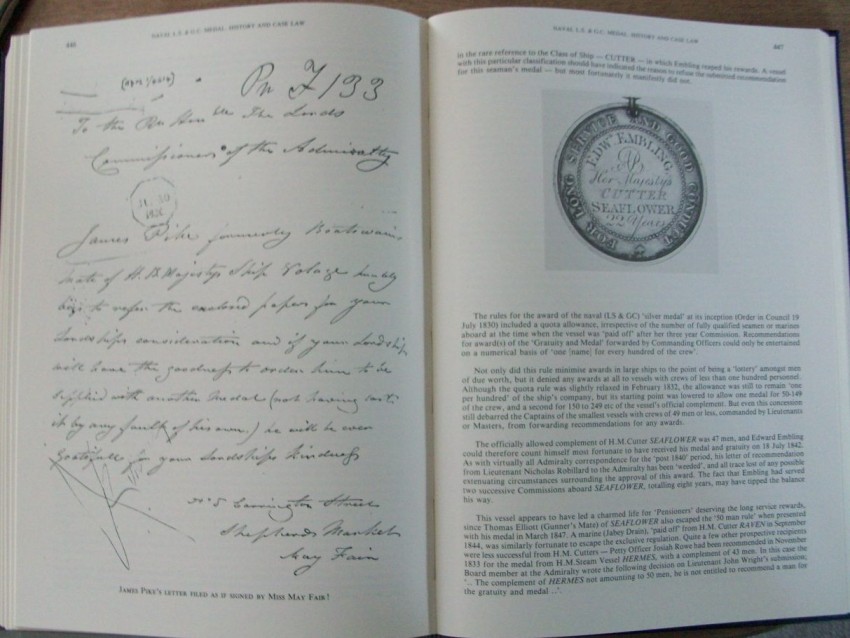 446
NAVAL L.S. & G.C. MEDAL, HISTORY AND CASE LAW
Pn F133
To the Rt Honble The Lords
Commissioners of the Admiralty
James Pike formerly Boatswains
mate of H. B Majestys Ship Volage humbly
begs to refer the enclosed papers for your
Lordships consideration and if your Lordships
will have the goodness to order him to be
supplied with another Medal (not having lost
it by any fault of his own) he will be ever
gratefull for your Lordships kindness
No 5 Carrington Street
Shepherds Market
May Fair
JAMES PIKE'S LETTER FILED AS IF SIGNED BY MISS MAY FAIR!
NAVAL L.S. & G.C. MEDAL, HISTORY AND CASE LAW
447
in the rare reference to the Class of Ship — CUTTER — in which Embling reaped his rewards. A vessel
with this particular classification should have indicated the reason to refuse the submitted recommendation
for this seaman's medal — but most fortunately it manifestly did not.
FOR LONG SERVICE AND GOOD CONDUCT
EDWD. EMBLING,
AB
Her Majesty's
CUTTER
SEAFLOWER
22 Years
The rules for the award of the naval (LS & GC) 'silver medal' at its inception (Order in Council 19
July 1830) included a quota allowance, irrespective of the number of fully qualified seamen or marines
aboard at the time when the vessel was 'paid off' after her three year Commission. Recommendations
for award(s) of the 'Gratuity and Medal' forwarded by Commanding Officers could only be entertained
on a numerical basis of 'one [name] for every hundred of the crew'.
Not only did this rule minimise awards in large ships to the point of being a 'lottery' amongst men
of due worth, but it denied any awards at all to vessels with crews of less than one hundred personnel.
Although the quota rule was slightly relaxed in February 1832, the allowance was still to remain 'one
per hundred' of the ship's company, but its starting point was lowered to allow one medal for 50-149
of the crew, and a second for 150 to 249 etc of the vessel's official complement. But even this concession
still debarred the Captains of the smallest vessels with crews of 49 men or less, commanded by Lieutenants
or Masters, from forwarding recommendations for any awards.
The officially allowed complement of H.M.Cutter SEAFLOWER was 47 men, and Edward Embling
could therefore count himself most fortunate to have received his medal and gratuity on 18 July 1842.
As with virtually all Admiralty correspondence for the 'post 1840' period, his letter of recommendation
from Lieutenant Nicholas Robillard to the Admiralty has been 'weeded', and all trace lost of any possible
extenuating circumstances surrounding the approval of this award. The fact that Embling had served
two successive Commissions aboard SEAFLOWER, totalling eight years, may have tipped the balance
his way.
This vessel appears to have led a charmed life for 'Pensioners' deserving the long service rewards,
since Thomas Elliott (Gunner's Mate) of SEAFLOWER also escaped the '50 man rule' when presented
with his medal in March 1847. A marine (Jabey Drain), 'paid off' from H.M. Cutter RAVEN in September
1844, was similarly fortunate to escape the exclusive regulation. Quite a few other prospective recipients
were less successful from H.M. Cutters — Petty Officer Josiah Rows had been recommended in November
1833 for the medal from H.M.Steam Vessel HERMES, with a complement of 43 men. In this case the
Board member at the Admiralty wrote the following decision on Lieutenant John Wright's submission;
'.. The complement of HERMES not amounting to 50 men, he is not entitled to recommend a man for
the gratuity and medal ..'.